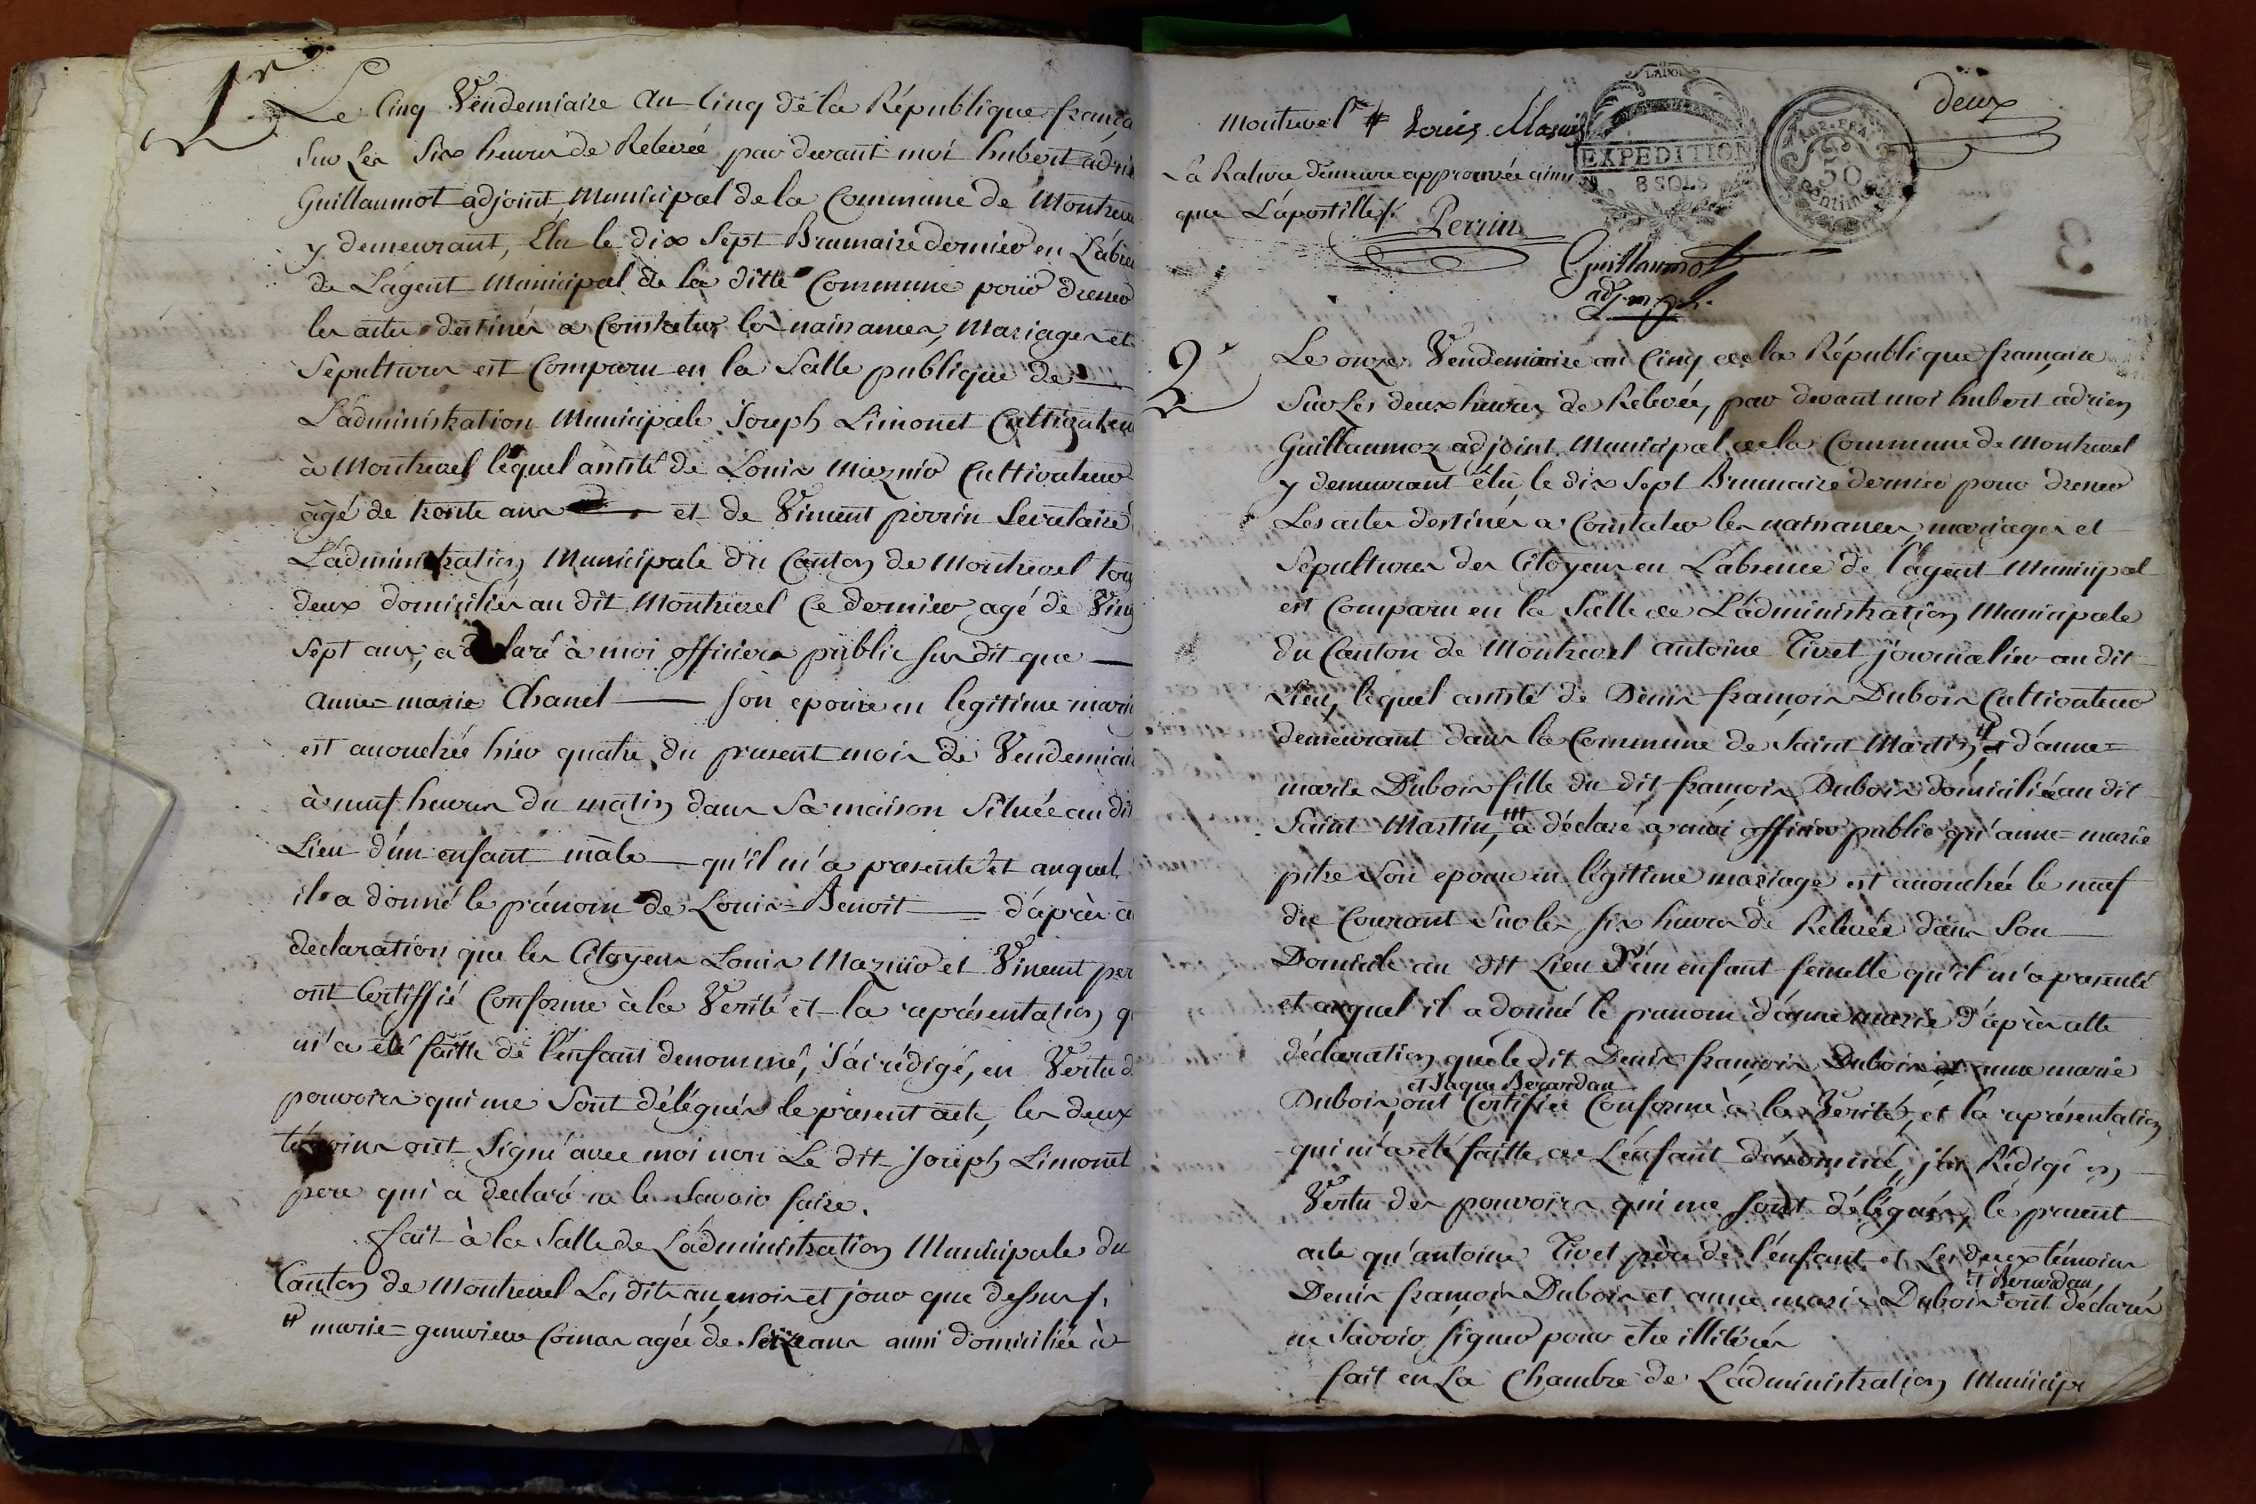 1r
Le Cinq Vendemiaire an Cinq de la République frança
Sur Les Six heures de Relevée par devant moi hubert adri
Guillaumot adjoint Municipal de la Commune de Montreve
y demeurant, Elu le dix Sept Brumaire dernier en L'abse
de L'agent Municipal de la ditte Commune pour dresser
les actes destinés a Constater les naissances, Mariages et
Sepultures est Comparu en la Salle publique de
L'administration Municipale Joseph Limonet Cultivateur
à Montrevel lequel assisté de Louis Maznio Cultivateur
âgé de trente ans et de Vincent perrin Secretaire
L'administration Municipale du Canton de Montrevel tou
deux domiciliés au dit Montrevel Ce dernier agé de Ving
Sept ans, a déclaré à moi officier public susdit que
anne=marie Chanel son epouse en legitime mari
est accouchée hier quatre du present mois de Vendemiai
à neuf heures du matin dans Sa maison Située au dit
Lieu d'un enfant mâle qu'il m'a presenté et auquel
il a donné le prénom de Louis=Benoit d'après
declaration que les Citoyens Louis Maznio et Vincent per
ont Certiffié Conforme à la Verité et la représentation q
m'a été faitte de l'enfant denommé, J'ai rédigé, en Vertu d
pouvoirs qui me Sont délégués le present acte, les deux
témoins ont Signé avec moi non Le dit Joseph Limonet
pere qui a declaré ne le Savoir faire.
fait à la Salle de L'administration Municipale du
Canton de Montrevel Les dits an, mois et jour que dessus
# marie=genevieve Comas agée de Seize ans aussi domiciliée à
deux
Montrevel # Louis Maznio
La Rature demeure approuvée ainsi
que L'apostille
Perrin
EXPEDITION
8 SOLS
REP. FRA.
50
Centimes
Guillaumot
adj. m.
3
2e
Le onze Vendemiaire an Cinq de la République française
Sur Les deux heures de Relevée, par devant moi hubert adrien
Guillaumoz adjoint Municipal de la Commune de Montrevel
y demeurant élu le dix Sept Brumaire dernier pour dresser
Les actes destinés a Constater les naissances, mariages et
Sepultures des Citoyens en L'absence de l'agent Municipal
est Comparu en la Salle de L'administration Municipale
du Canton de Montrevel antoine Tivet journalier au dit
Lieu, lequel assisté de Denis françois Dubois Cultivateur
demeurant dans la Commune de Saint Martin # et d'anne=
marie Dubois fille du dit françois Dubois domiciliée au dit
Saint Martin, ### a déclaré à moi officier public qu'anne=marie
pitre son epouse en légitime mariage est accouchée le neuf
du Courant Sur les six heures de Relevée dans Son
Domicile au dit Lieu D'un enfant femelle qu'il m'a presenté
et auquel il a donné le prenom d'anne marie d'après cette
déclaration que le dit Denis françois Dubois et anne marie
Dubois, et Jaque Berardan ont Certifiée Conforme à la Verité, et la représentation
qui m'a été faitte de L'enfant dénommé, j'ai Rédigé en
Vertu des pouvoirs qui me sont délégués, le present
acte qu'antoine Tivet père de l'enfant et Les deux témoins
Denis françois Dubois et anne marie Dubois et Berardan ont déclarés
ne Savoir signer pour être illitérés
fait en La Chambre de L'administration Municip